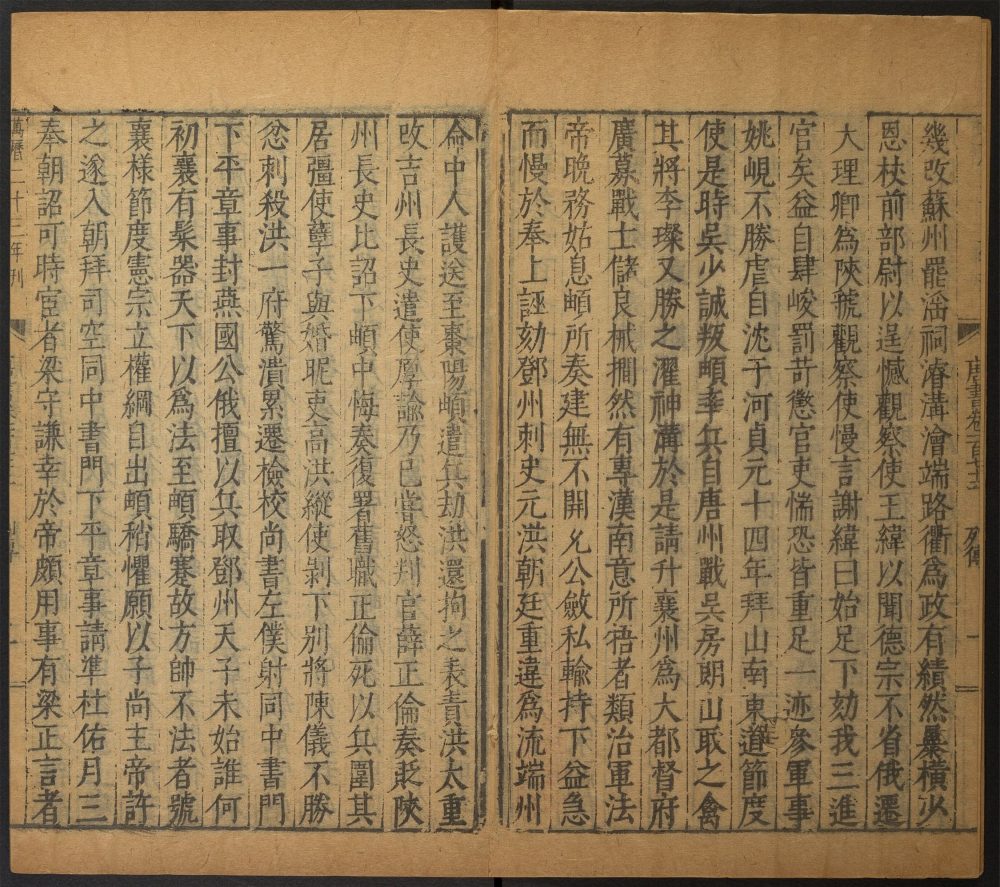 唐書卷一百七十二 列傳 一
幾改蘇州罷淫祠濬溝澮端路衢為政有績然暴橫少
恩杖前部尉以逞憾觀察使王緯以聞德宗不省俄遷
大理卿為陝虢觀察使慢言謝緯曰始足下劾我三進
官矣益自肆峻罰苛懲官吏惴恐皆重足一迹參軍事
姚峴不勝虐自沈于河貞元十四年拜山南東道節度
使是時吳少誠叛頔率兵自唐州戰吳房朗山取之禽
其將李璨又勝之濯神溝於是請升襄州為大都督府
廣募戰士儲良械撊然有專漢南意所牾者類治軍法
帝晚務姑息頔所奏建無不開允公斂私輸持下益急
而慢於奉上誣劾鄧州刺史元洪朝廷重違為流端州
命中人護送至棗陽頔遣兵劫洪還拘之表責洪太重
改吉州長史遣使厚諭乃已嘗怒判官薛正倫奏貶陝
州長史比詔下頔中悔奏復署舊職正倫死以兵圍其
居彊使孽子與婚昵吏高洪縱使剝下別將陳儀不勝
忿刺殺洪一府驚潰累遷檢校尚書左僕射同中書門
下平章事封燕國公俄擅以兵取鄧州天子未始誰何
初襄有髹器天下以為法至頔驕蹇故方帥不法者號
襄樣節度憲宗立權綱自出頔稍懼願以子尚主帝許
之遂入朝拜司空同中書門下平章事請準杜佑月三
奉朝詔可時宦者梁守謙幸於帝頗用事有梁正言者
萬曆二十三年刊